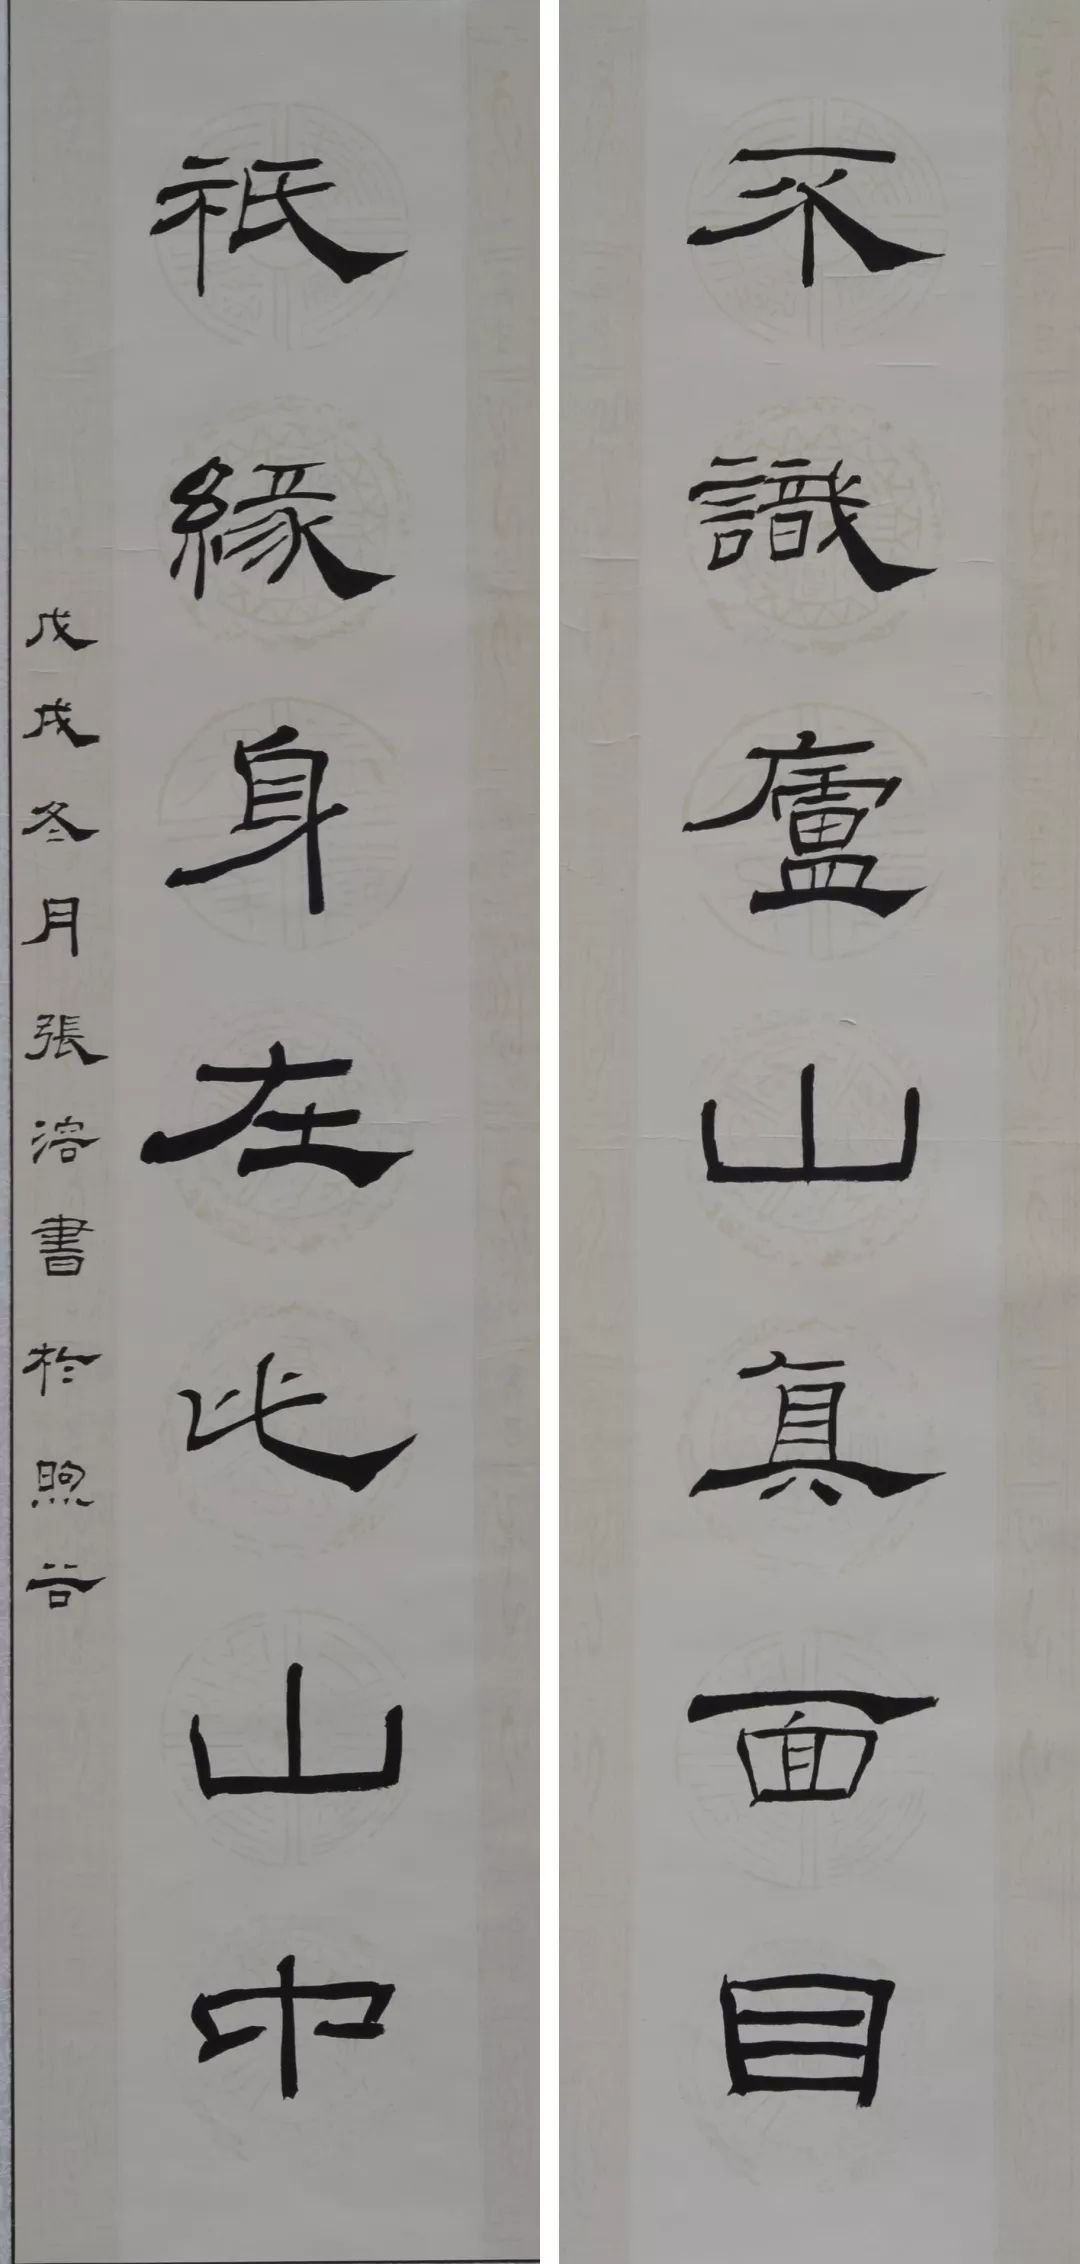 不識廬山真面目
祇緣身在此山中
戊戌冬月張溶書於煦谷